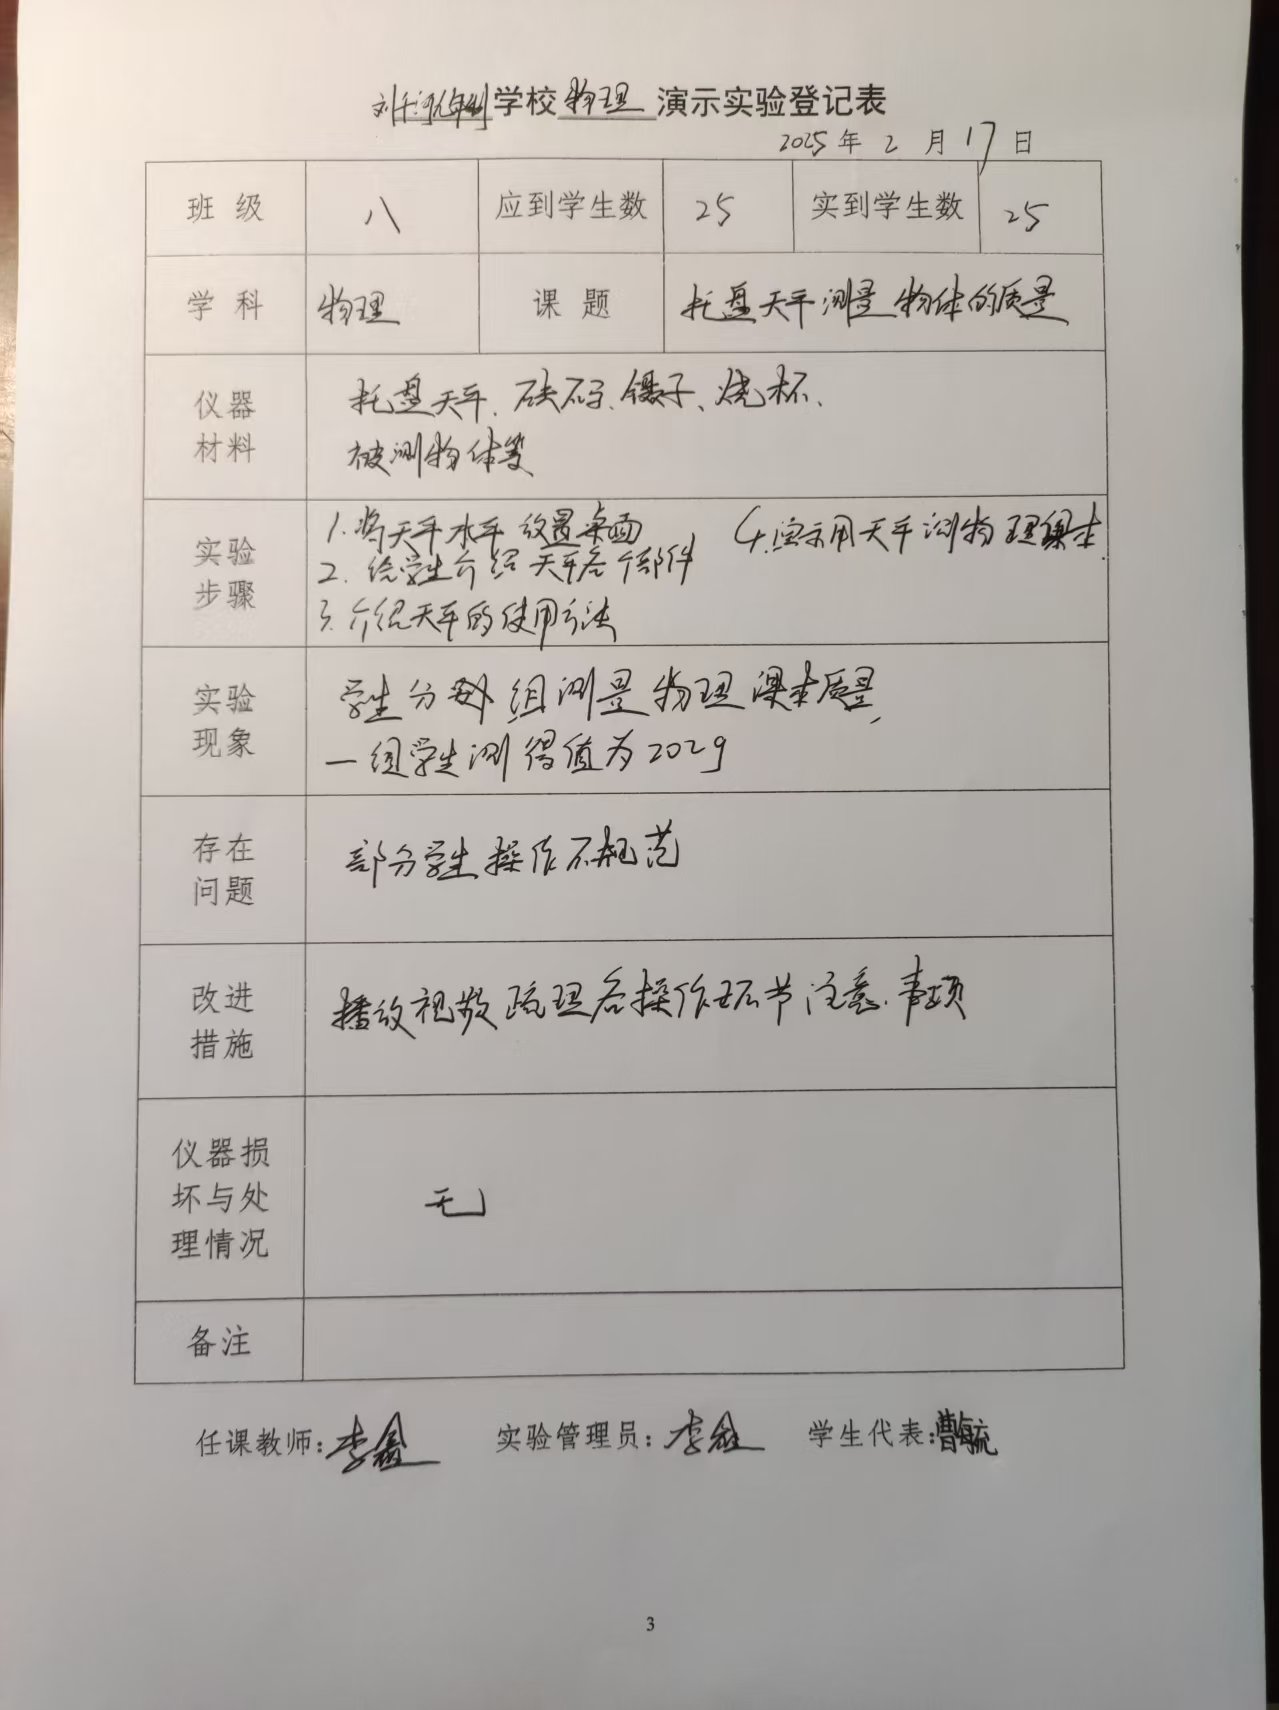 学校 物理 演示实验登记表
2025年2月17日
班级 八 应到学生数 25 实到学生数 25
学科 物理 课题 托盘天平测量物体的质量
仪器材料
托盘天平、砝码、镊子、烧杯、
被测物体等
实验步骤
1.将天平水平放置桌面
2.给学生介绍天平各个部件
3.介绍天平的使用方法
4.演示用天平测物理课本
实验现象
学生分组测量物理课本质量,
一组学生测得值为202g
存在问题
部分学生操作不规范
改进措施
播放视频梳理各操作环节注意事项
仪器损坏与处理情况
无
备注
任课教师:李鑫 实验管理员:李鑫 学生代表:曹毓
3